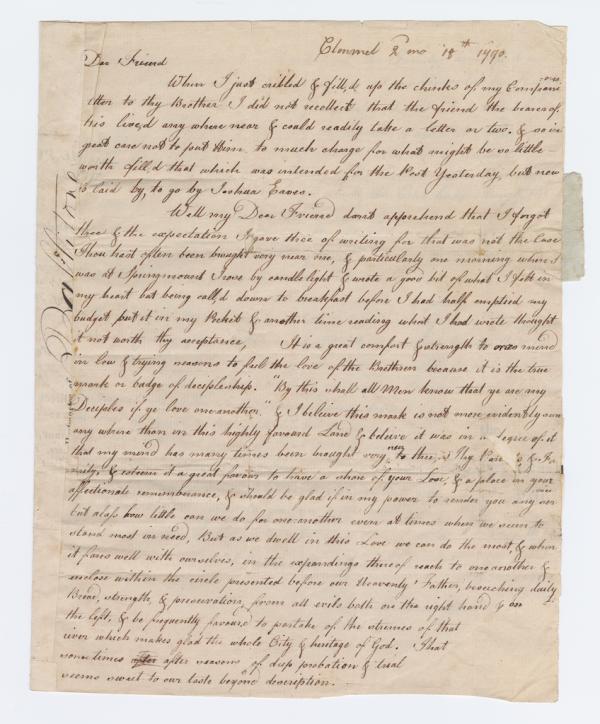 Clonmel 2 mo 18th 1790.
Dear Friend
When I just cribled & fill,d up the chinks of my
letter to thy Brother I did not recollect that the friend the bearer of
this live,d any where near & could readily take a letter or two. & so in
great care not to put him to much charge for what might be so little
worth fill,d that which was intended for the Post Yesterday, but now
is laid by, to go by Joshua Eaves.
Well my Dear Freind don't apprehend that I forgot
thee & the expectation I gave thee of writing for that was not the Case
Thou hast often been brought very near me, & particularly one morning when I
was at Youngmount I rose by candle light & wrote a good bit of what I felt in
my heart but being call,d down to breakfast before I had half emptied my
budget put it in my Pocket & another time reading what I had wrote thought
it not worth thy acceptance, It is a great comfort & strength to mind
in low & trying seasons to feel the love of the Brethren because it is the true
mark or badge of decipleship. "By this shall all Men know that ye are my
Deciples if ye love one another." & I beleive this mark is not more evidently seen
any where than in this highly favoard Land & beleive it was in a degree of it
that my mind has many times been brought very near to thee, thy &
& esteem it a great favour to have a share of your Love, & a place in your
affectionate remembrance, & should be glad if in my power to render you any
but alass how little can we do for one another even at times when we seem to
stand most in need, But as we dwell in this Love we can do the most, & when
it fares well with ourselves, in the expandings thereof reach to one another &
enclose within the circle presented before our Heavenly Father, beseeching daily
Bread, strength, & preservation from all evils both on the right hand & on
the left, & be frequently favour'd to partake of the streames of that
river which makes glad the whole City & heritage of God. That
sometimes after seasons of deep probation & trial
seems sweet to our taste beyond description.